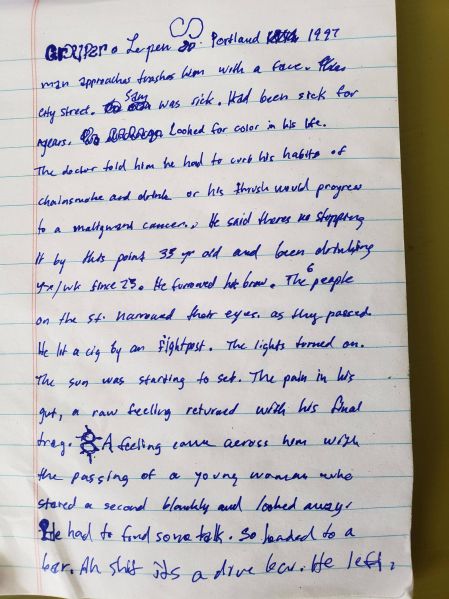 Portland 1997
man approaches trashes him with a face.
city street. Sam was sick. Had been sick for
years. Looked for color in his life.
The doctor told him he had to curb his habits of
chainsmoke and drink or his thrush would progress
to a malignant cancer. He said theres no stopping
it by this point 35 yr old and been drinking
4x/wk since 23. He furrowed his brow. The 6 people
on the st. narrowed their eyes. as they passed
He lit a cig by an lightpost. The lights turned on.
The sun was starting to set. The pain in his
gut, a raw feeling returned with his final
drag. A feeling came across him with
the passing of a young woman who
stared a second blankly and looked away.
He had to find some talk. So headed to a
bar. Ah shit its a dive bar. He left.